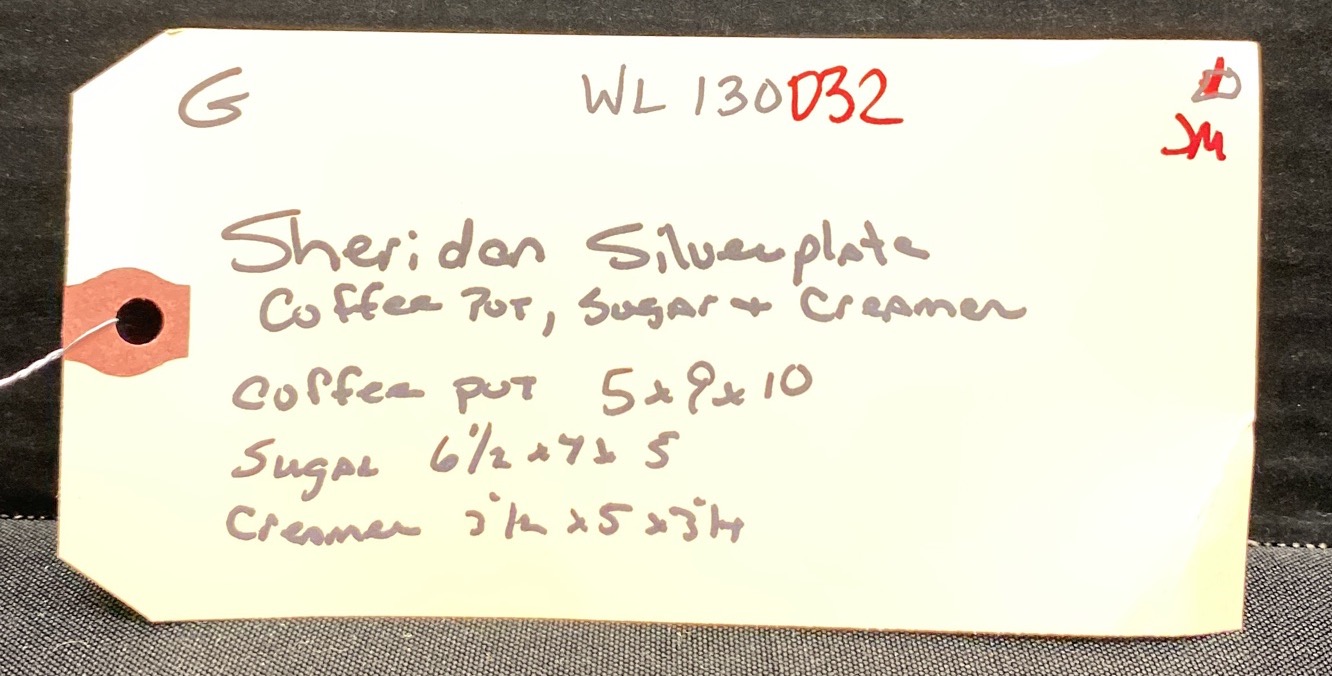 G WL 130D32
JM
Sheridan Silverplate
Coffee Pot, Sugar + Creamer
Coffee pot 5x9x10
Sugar 6 1/2 x 7 x 5
Creamer 3 1/2 x 5 x 3 1/4